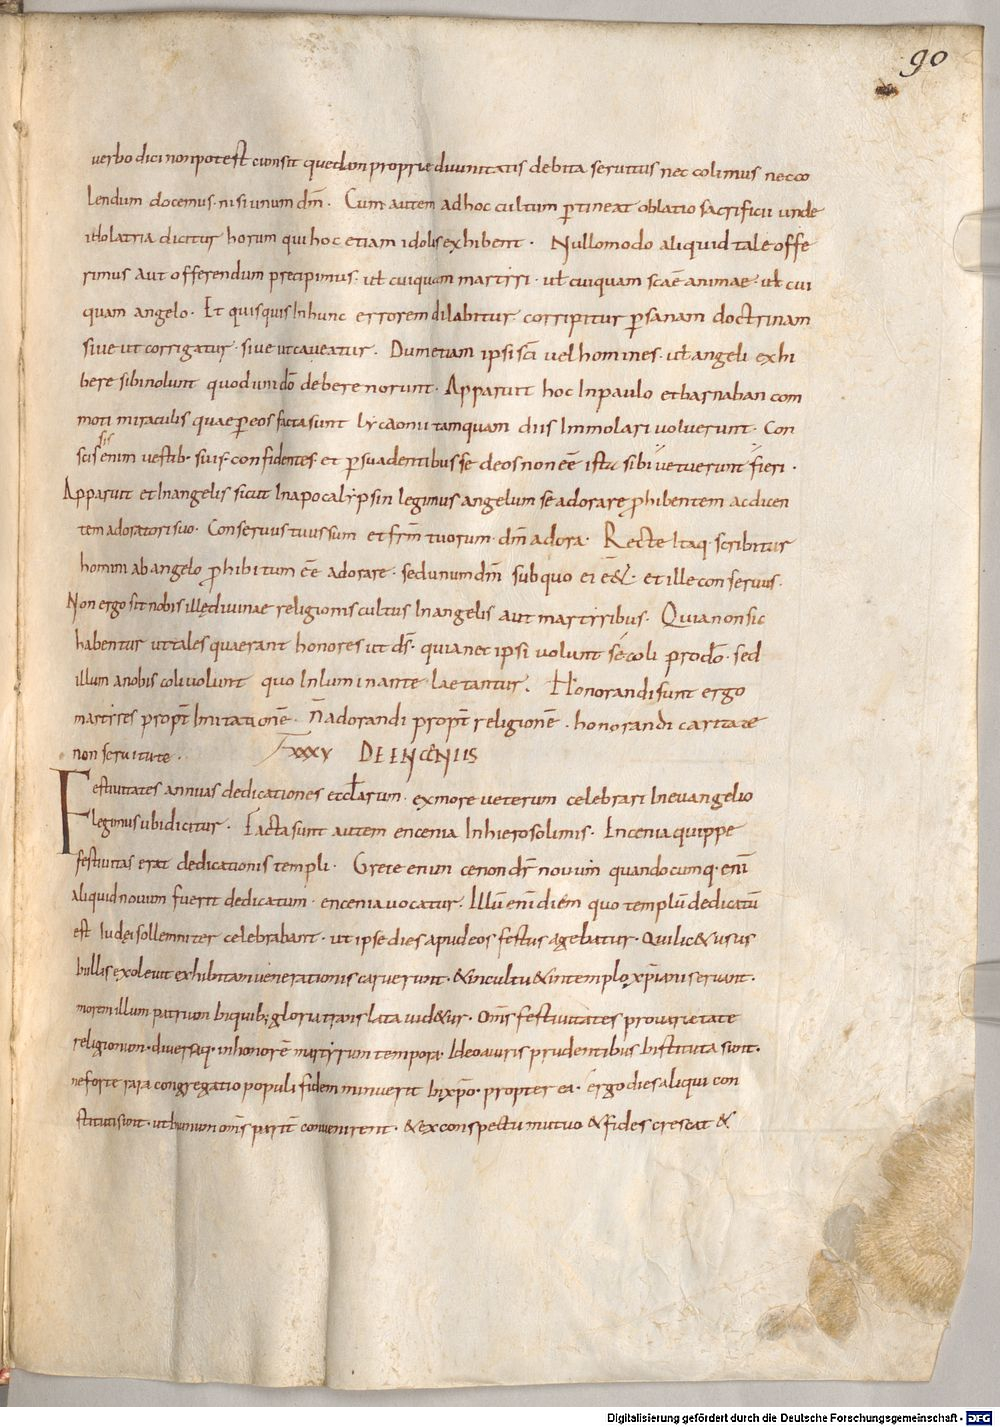 90
verbo dici non potest cum sit quedam proprie divinitatis debita servitus nec colimus nec co
lendum docemus · nisi unum dm̄ . Cum autem ad hoc cultum ꝑtineat oblatio sacrificii unde
idolatria dicitur horum qui hoc etiam idolis exhibent · Nullo modo aliquid tale offe
rimus aut offerendum precipimus · vel cuiquam martiri · vel cuiquam scāe animae · vel cui
quam angelo · Et quisquis In hunc errorem dilabitur corripitur ꝑ sanam doctrinam
sive ut corrigatur · sive ut caveatur . Dum etiam ipsi sc̄i vel homines · vel angeli exhi
bere sibi nolunt quod uni dō debere norunt · Apparuit hoc In paulo et barnaban com
moti miraculis quae ꝑ eos facta sunt lycaonii tamquam diis Immolari voluerunt · Con
scisis enim vestib · suis · confidentes · et ꝑsuadentibus se deos non ēe ista sibi vetuerunt fieri ·
Apparuit et In angelis sicut In apocalypsin legimus angelum se adorare ꝓhibentem ac dicen
tem adoratori suo · Conservus tuus sum et frm̄ tuorum · dm̄ adora · Recte Itaq · scribitur
homini ab angelo ꝓhibitum ēe adorare · sed unum dm̄ sub quo ei ē& et ille conservus ·
Non ergo sit nobis illę divinae religionis cultus In angelis aut martiribus · Quia non sic
habentur ut tales quaerant honores ut ds̄ · quia nec ipsi volunt se coli pro dō · sed
illum a nobis coli volunt quo Inluminante laetantur . Honorandi sunt ergo
martires propt̄ Imitationē · n̄ adorandi propt̄ religionē · honorandi caritate
non servitute · XXXV DE ENCĒNIIS
Festivitates annuas dedicationes eccl̄arum · ex more veterum celebrari In evangelio
legimus ubi dicitur · Facta sunt autem encenia In hierosolimis · Encenia quippe
festivitas erat dedicationis templi · Grece enim cenon dr̄ novum quandocumq · enī
aliquid novum fuerit dedicatum · encenia vocatur · Illū enī diem quo templū dedicatū
est Iudei sollemniter celebrabant · ut ipse dies apud eos festus agebatur · Qui lic& usus
Illis exolevit exhibitam venerationis caruerunt · & in cultu & in templo xp̄iani servant ·
morem illum patrum In quib; gloria translata vid&ur · Om̄s festivitates pro varietate
religionum · diversaq · in honorē martyrum tempora · Ideo a viris prudentibus Instituta sunt ·
ne forte rara congregatio populi fidem minuerit In xp̄o · propter ea · ergo dies aliqui con
stituti sunt · ut In unum om̄s parit̄ convenirent · & ex conspectu mutuo & fides crescat &
Digitalisierung gefördert durch die Deutsche Forschungsgemeinschaft - DFG